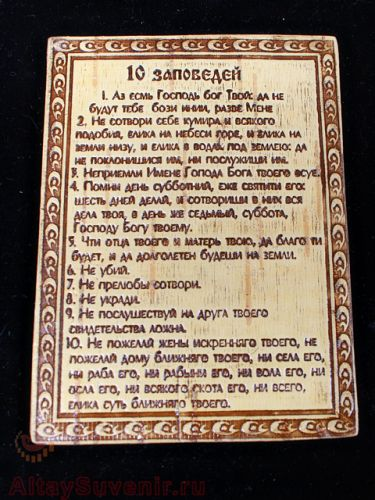 10 заповедей
1. Аз есмь Господь бог Твой: да не
будут тебе бози инии, разве Мене
2. Не сотвори себе кумира и всякого
подобия, елика на небеси горе, и елика на
земли низу, и елика в водах под землею: да
не поклонишися им, ни послужиши им.
3. Неприемли Имене Гопода Бога твоего всуе.
4. Помни день субботний, еже святити его:
шесть дней делай, и сотвориши в них вся
дела твоя, в день же седьмый, суббота,
Господу Богу твоему.
5. Чти отца твоего и матерь твою, да благо ти
будет, и да долголетен будеши на земли.
6. Не убий.
7. Не прелюбы сотвори.
8. Не укради.
9. Не послушествуй на друга твоего
свидетельства ложна.
10. Не пожелай жены искренняго твоего, не
пожелай дому ближняго твоего, ни села его,
ни раба его, ни рабыни его, ни вола его, ни
осла его, ни всякого скота его, ни всего,
елика суть ближняго твоего.
AltaySuvenir.ru